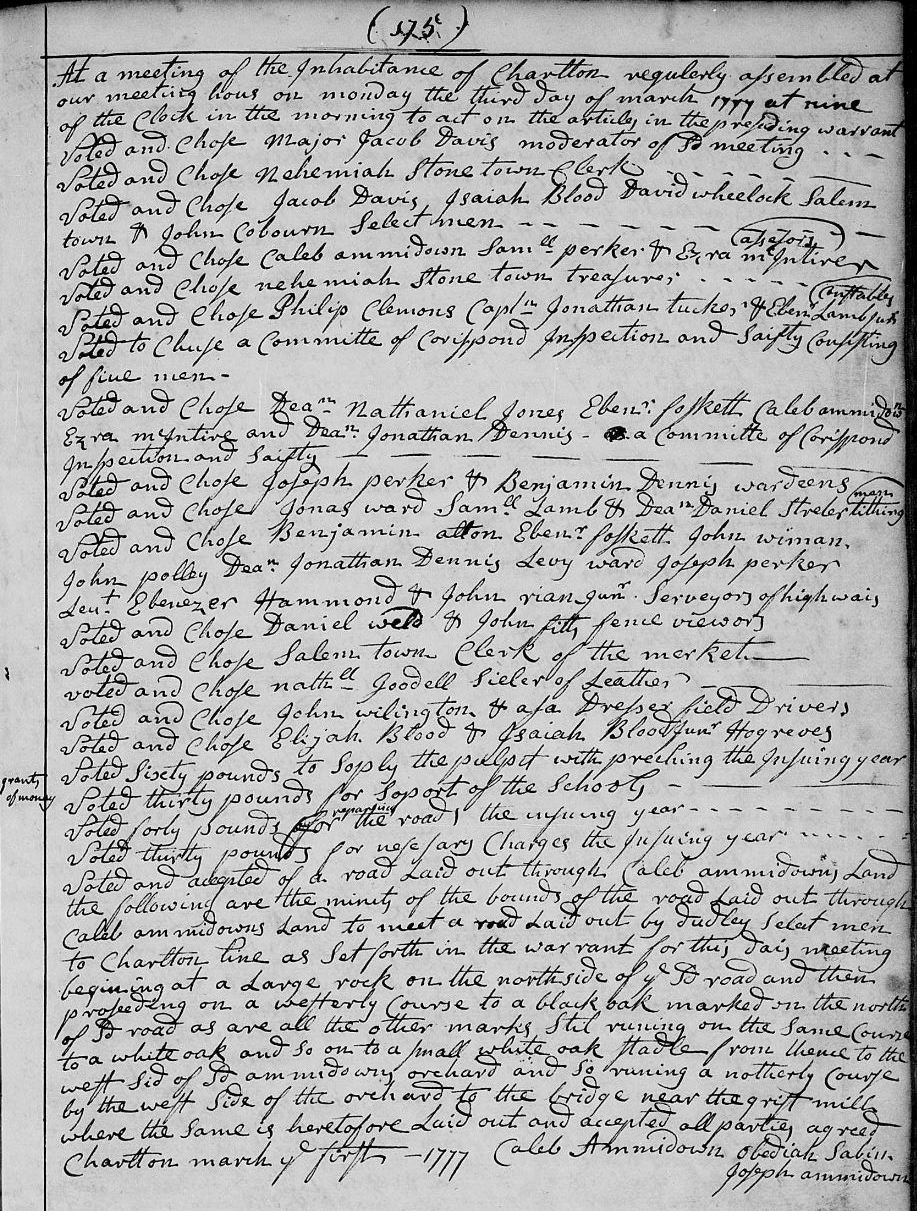 (175)
At a meeting of the Inhabitance of Charlton regulerly assembled at
our meeting hous on monday the third day of march 1777 at nine
of the Clock in the morning to act on the articles in the preseding warrant
Voted and Chose Major Jacob Davis moderator of sd meeting
Voted and Chose Nehemiah Stone town Clerk
Voted and Chose Jacob Davis Isaiah Blood David wheelock Salem
town & John Cobourn Select men
assesors
Voted and Chose Caleb ammidown Samll perker & Ezra mcIntirer
Voted and Chose nehemiah Stone town treasurer
Constables
Voted and Chose Philip Clemons Captn Jonathan tucker & Ebenr Lamb junr
Voted to Chuse a Committe of Corispond Inspection and Saifty Consisting
of five men -
Voted and Chose Dean Nathaniel Jones Ebenr foskett Caleb ammidown
Ezra mcIntire and Dean Jonathan Dennis - a Committe of Corispond
Inspection and Saifty
Voted and Chose Joseph perker & Benjamin Dennis wardeens
men
Voted and Chose Jonas ward Samll Lamb & Dean Daniel Streter tithing
Voted and Chose Benjamin alton Ebenr foskett John wiman
John polley Dean Jonathan Dennis Levy ward Joseph perker
Leut Ebenezer Hammond & John rian Junr Serveyors of high wais
Voted and Chose Daniel weld & John fitts fence viewors
Voted and Chose Salem town Clerk of the merket
voted and Chose nathll Goodell Sieler of Leather
Voted and Chose John wilington & asa Dresser field Drivers
Voted and Chose Elijah Blood & Isaiah Blood junr Hogreves
Voted Sixty pounds to Soply the pulpit with preching the Insuing year
grants
of money
Voted thirty pounds for Soport of the Schools
reparing
Voted forty pounds for the roads the insuing year
Voted thirty pounds for nessesary Charges the Insuing year
Voted and acepted of a road Laid out through Caleb ammidowns Land
the following are the minits of the bounds of the road Laid out through
Caleb ammidowns Land to meet a road Laid out by dudley Select men
to Charlton line as Set forth in the warrant for this dais meeting
begining at a Large rock on the north side of ye sd road and then
proseeding on a westerly Course to a black oak marked on the north
of sd road as are all the other marks Stil runing on the Same Course
to a white oak and so on to a small white oak stadle from thence to the
west sid of sd ammidowns orchard and so runing a notherly Course
by the west side of the orchard to the bridge near the grist mill
where the same is heretofore Laid out and accepted all parties agreed
Charlton march ye first - 1777 Caleb Ammidown obediah Sabin
Joseph ammidown